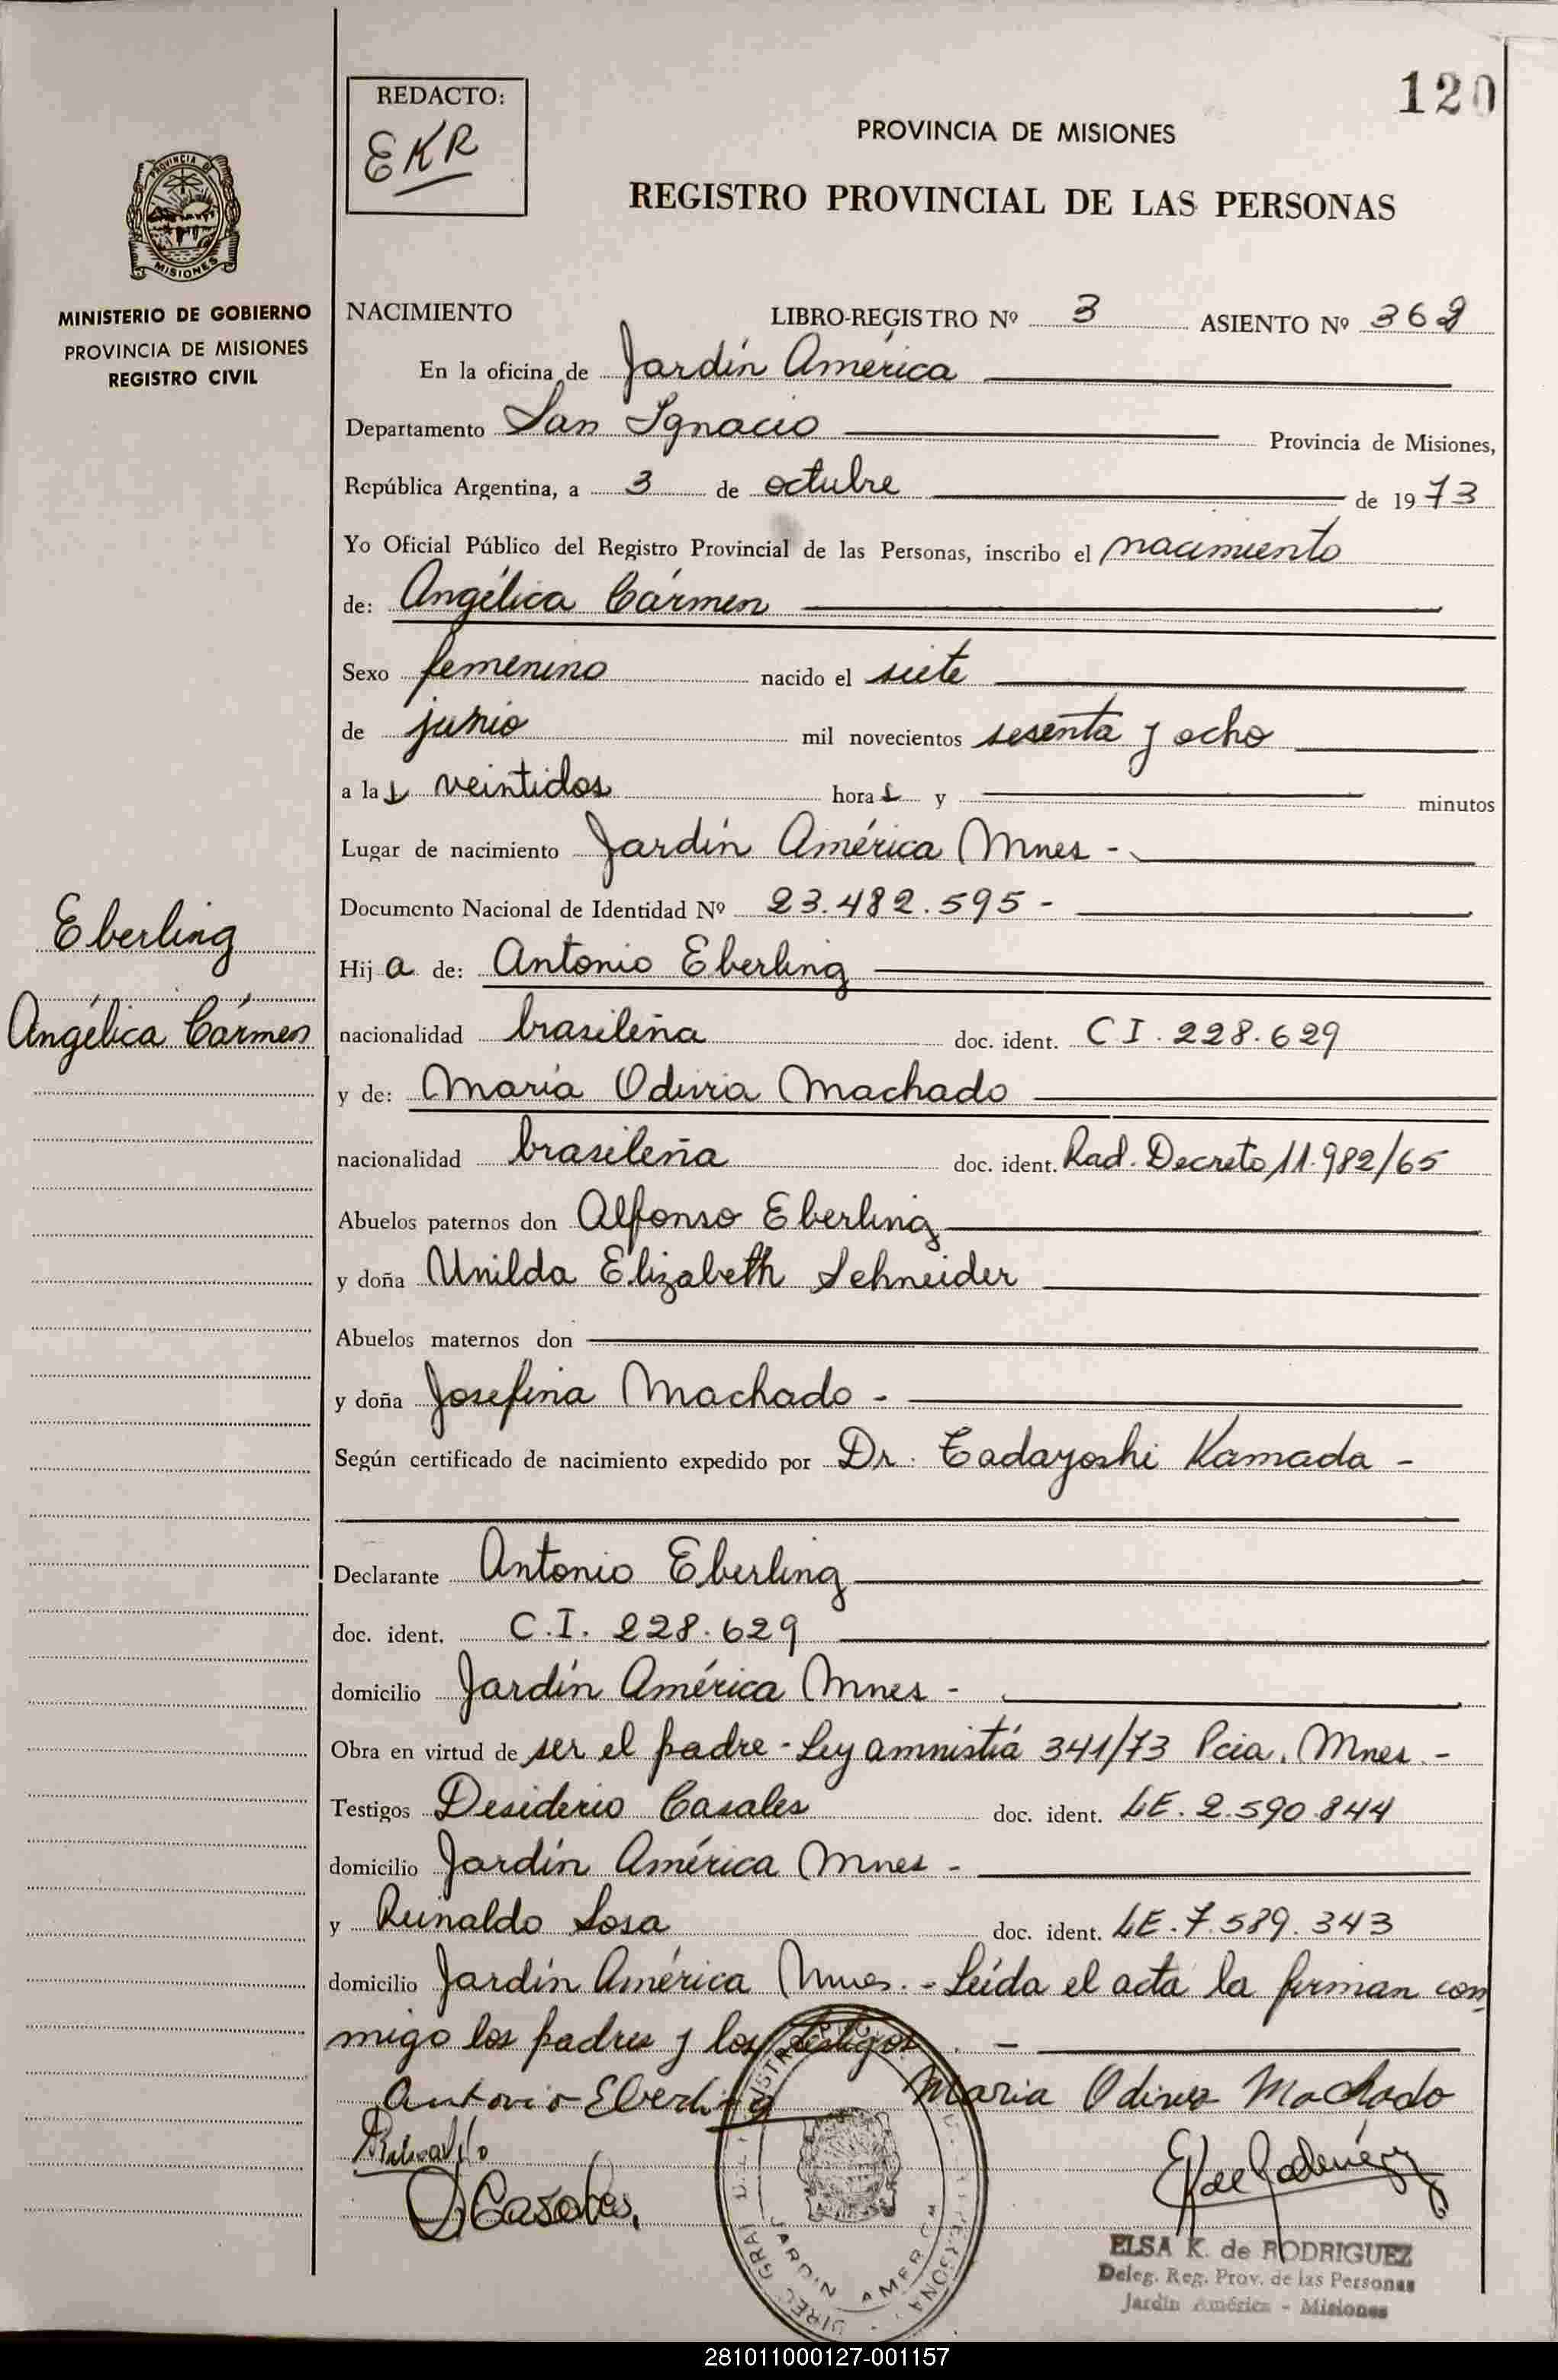 120
REDACTO:
EKR
PROVINCIA DE MISIONES
REGISTRO PROVINCIAL DE LAS PERSONAS
PROVINCIA DE
MISIONES
MINISTERIO DE GOBIERNO
PROVINCIA DE MISIONES
REGISTRO CIVIL
NACIMIENTO LIBRO-REGISTRO Nº 3 ASIENTO Nº 362
En la oficina de Jardín América
Departamento San Ignacio Provincia de Misiones,
República Argentina, a 3 de octubre de 1973
Yo Oficial Público del Registro Provincial de las Personas, inscribo el nacimiento
de: Angélica Cármen
Sexo femenino nacido el siete
de junio mil novecientos sesenta y ocho
a las veintidos horas y minutos
Lugar de nacimiento Jardín América Mnes -
Documento Nacional de Identidad Nº 23.482.595 -
Eberling
Angélica Cármen
Hija de: Antonio Eberling
nacionalidad brasileña doc. ident. C I. 228.629
y de: María Odivia Machado
nacionalidad brasileña doc. ident. Rad. Decreto 11.982/65
Abuelos paternos don Alfonso Eberling
y doña Unilda Elizabeth Schneider
Abuelos maternos don
y doña Josefina Machado -
Según certificado de nacimiento expedido por Dr. Tadayoshi Kamada -
Declarante Antonio Eberling
doc. ident. C.I. 228.629
domicilio Jardín América Mnes -
Obra en virtud de ser el padre - Ley amnistía 341/73 Pcia. Mnes. -
Testigos Desiderio Casales doc. ident. LE. 2.590.844
domicilio Jardín América Mnes -
y Reinaldo Sosa doc. ident. LE. 7.589.343
domicilio Jardín América Mnes. - Leída el acta la firman con
migo los padres y los testigos. -
Antonio Eberling Maria Odivia Machado
D Casales
JARDIN AMERICA
ELSA K. de RODRIGUEZ
Deleg. Reg. Prov. de las Personas
Jardín América - Misiones
281011000127-001157